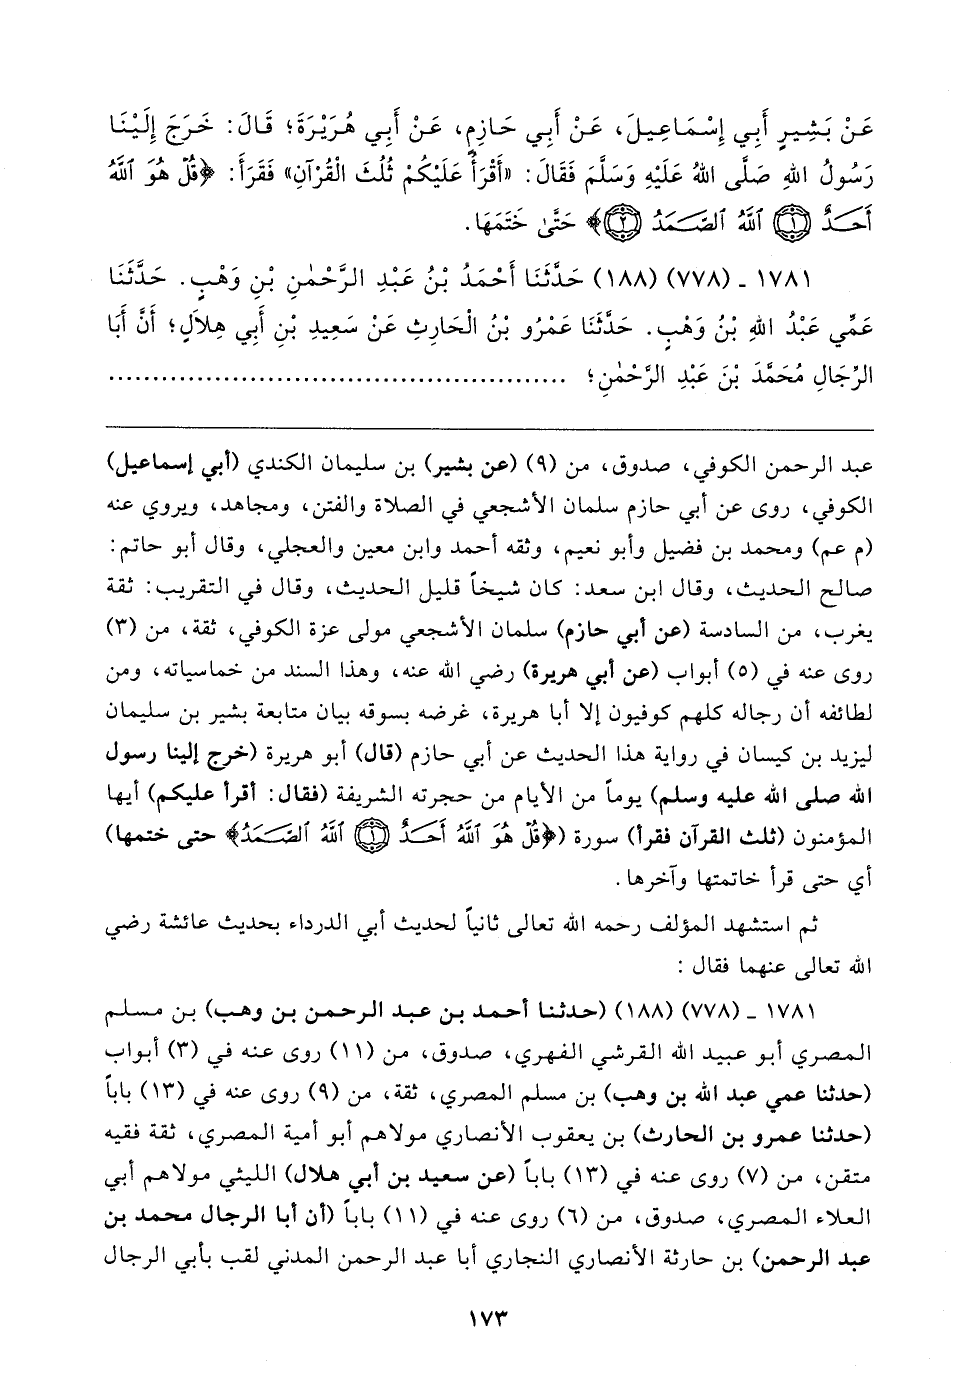 عَنْ بَشِيرٍ أَبِي إِسْمَاعِيلَ، عَنْ أَبِي حَازِمٍ، عَنْ أَبِي هُرَيْرَةَ؛ قَالَ: خَرَجَ إِلَيْنَا
رَسُولُ اللهِ صَلَّى اللهُ عَلَيْهِ وَسَلَّمَ فَقَالَ: «أَقْرَأُ عَلَيْكُمْ ثُلُثَ الْقُرْآنِ» فَقَرَأَ: ﴿قُلْ هُوَ ٱللَّهُ
أَحَـدٌ ۝١ ٱللَّهُ ٱلصَّـمَدُ ۝٢﴾ حَتَّىٰ خَتَمَهَا.
١٧٨١ ـ (٧٧٨) (١٨٨) حَدَّثَنَا أَحْمَدُ بْنُ عَبْدِ الرَّحْمٰنِ بْنِ وَهْبٍ. حَدَّثَنَا
عَمِّي عَبْدُ اللهِ بْنُ وَهْبٍ. حَدَّثَنَا عَمْرُو بْنُ الْحَارِثِ عَنْ سَعِيدِ بْنِ أَبِي هِلَالٍ؛ أَنَّ أَبَا
الرِّجَالِ مُحَمَّدَ بْنَ عَبْدِ الرَّحْمٰنِ؛ ..................................................
عبد الرحمن الكوفي، صدوق، من (٩) (عن بشير) بن سليمان الكندي (أبي إسماعيل)
الكوفي، روى عن أبي حازم سلمان الأشجعي في الصلاة والفتن، ومجاهد، ويروي عنه
(م عم) ومحمد بن فضيل وأبو نعيم، وثقه أحمد وابن معين والعجلي، وقال أبو حاتم:
صالح الحديث، وقال ابن سعد: كان شيخاً قليل الحديث، وقال في التقريب: ثقة
يغرب، من السادسة (عن أبي حازم) سلمان الأشجعي مولى عزة الكوفي، ثقة، من (٣)
روى عنه في (٥) أبواب (عن أبي هريرة) رضي الله عنه، وهذا السند من خماسياته، ومن
لطائفه أن رجاله كلهم كوفيون إلا أبا هريرة، غرضه بسوقه بيان متابعة بشير بن سليمان
ليزيد بن كيسان في رواية هذا الحديث عن أبي حازم (قال) أبو هريرة (خرج إلينا رسول
الله صلى الله عليه وسلم) يوماً من الأيام من حجرته الشريفة (فقال: أقرأ عليكم) أيها
المؤمنون (ثلث القرآن فقرأ) سورة (﴿قُلْ هُوَ ٱللَّهُ أَحَـدٌ ۝١ ٱللَّهُ ٱلصَّـمَدُ﴾ حتى ختمها)
أي حتى قرأ خاتمتها وآخرها.
ثم استشهد المؤلف رحمه الله تعالى ثانياً لحديث أبي الدرداء بحديث عائشة رضي
الله تعالى عنهما فقال:
١٧٨١ ـ (٧٧٨) (١٨٨) (حدثنا أحمد بن عبد الرحمن بن وهب) بن مسلم
المصري أبو عبيد الله القرشي الفهري، صدوق، من (١١) روى عنه في (٣) أبواب
(حدثنا عمي عبد الله بن وهب) بن مسلم المصري، ثقة، من (٩) روى عنه في (١٣) باباً
(حدثنا عمرو بن الحارث) بن يعقوب الأنصاري مولاهم أبو أمية المصري، ثقة فقيه
متقن، من (٧) روى عنه في (١٣) باباً (عن سعيد بن أبي هلال) الليثي مولاهم أبي
العلاء المصري، صدوق، من (٦) روى عنه في (١١) باباً (أن أبا الرجال محمد بن
عبد الرحمن) بن حارثة الأنصاري النجاري أبا عبد الرحمن المدني لقب بأبي الرجال
١٧٣